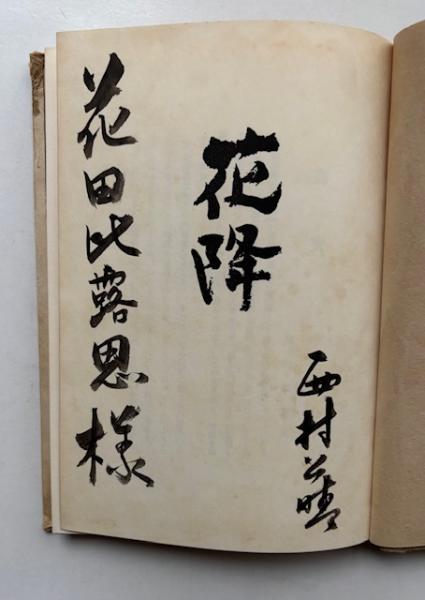 西村公晴
花降
花田比露思様